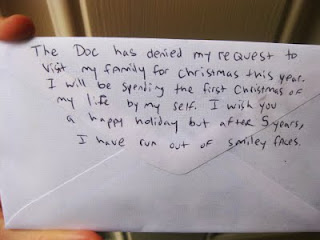 The Doc has denied my request to
visit my family for christmas this year.
I will be spending the first Christmas of
my life by my self. I wish you
a happy holiday but after 5 years,
I have run out of smiley faces.